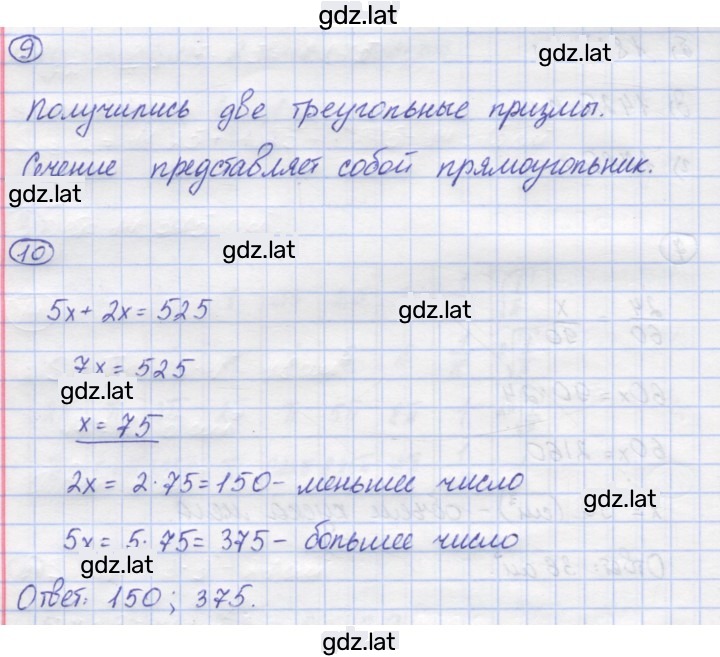 gdz.lat
9
gdz.lat
Получились две треугольные призмы.
Сечение представляет собой прямоугольник.
gdz.lat
10
gdz.lat
5x + 2x = 525
gdz.lat
7x = 525
gdz.lat
x = 75
2x = 2·75 = 150 - меньшее число
gdz.lat
5x = 5·75 = 375 - большее число
gdz.lat
Ответ: 150; 375.
gdz.lat